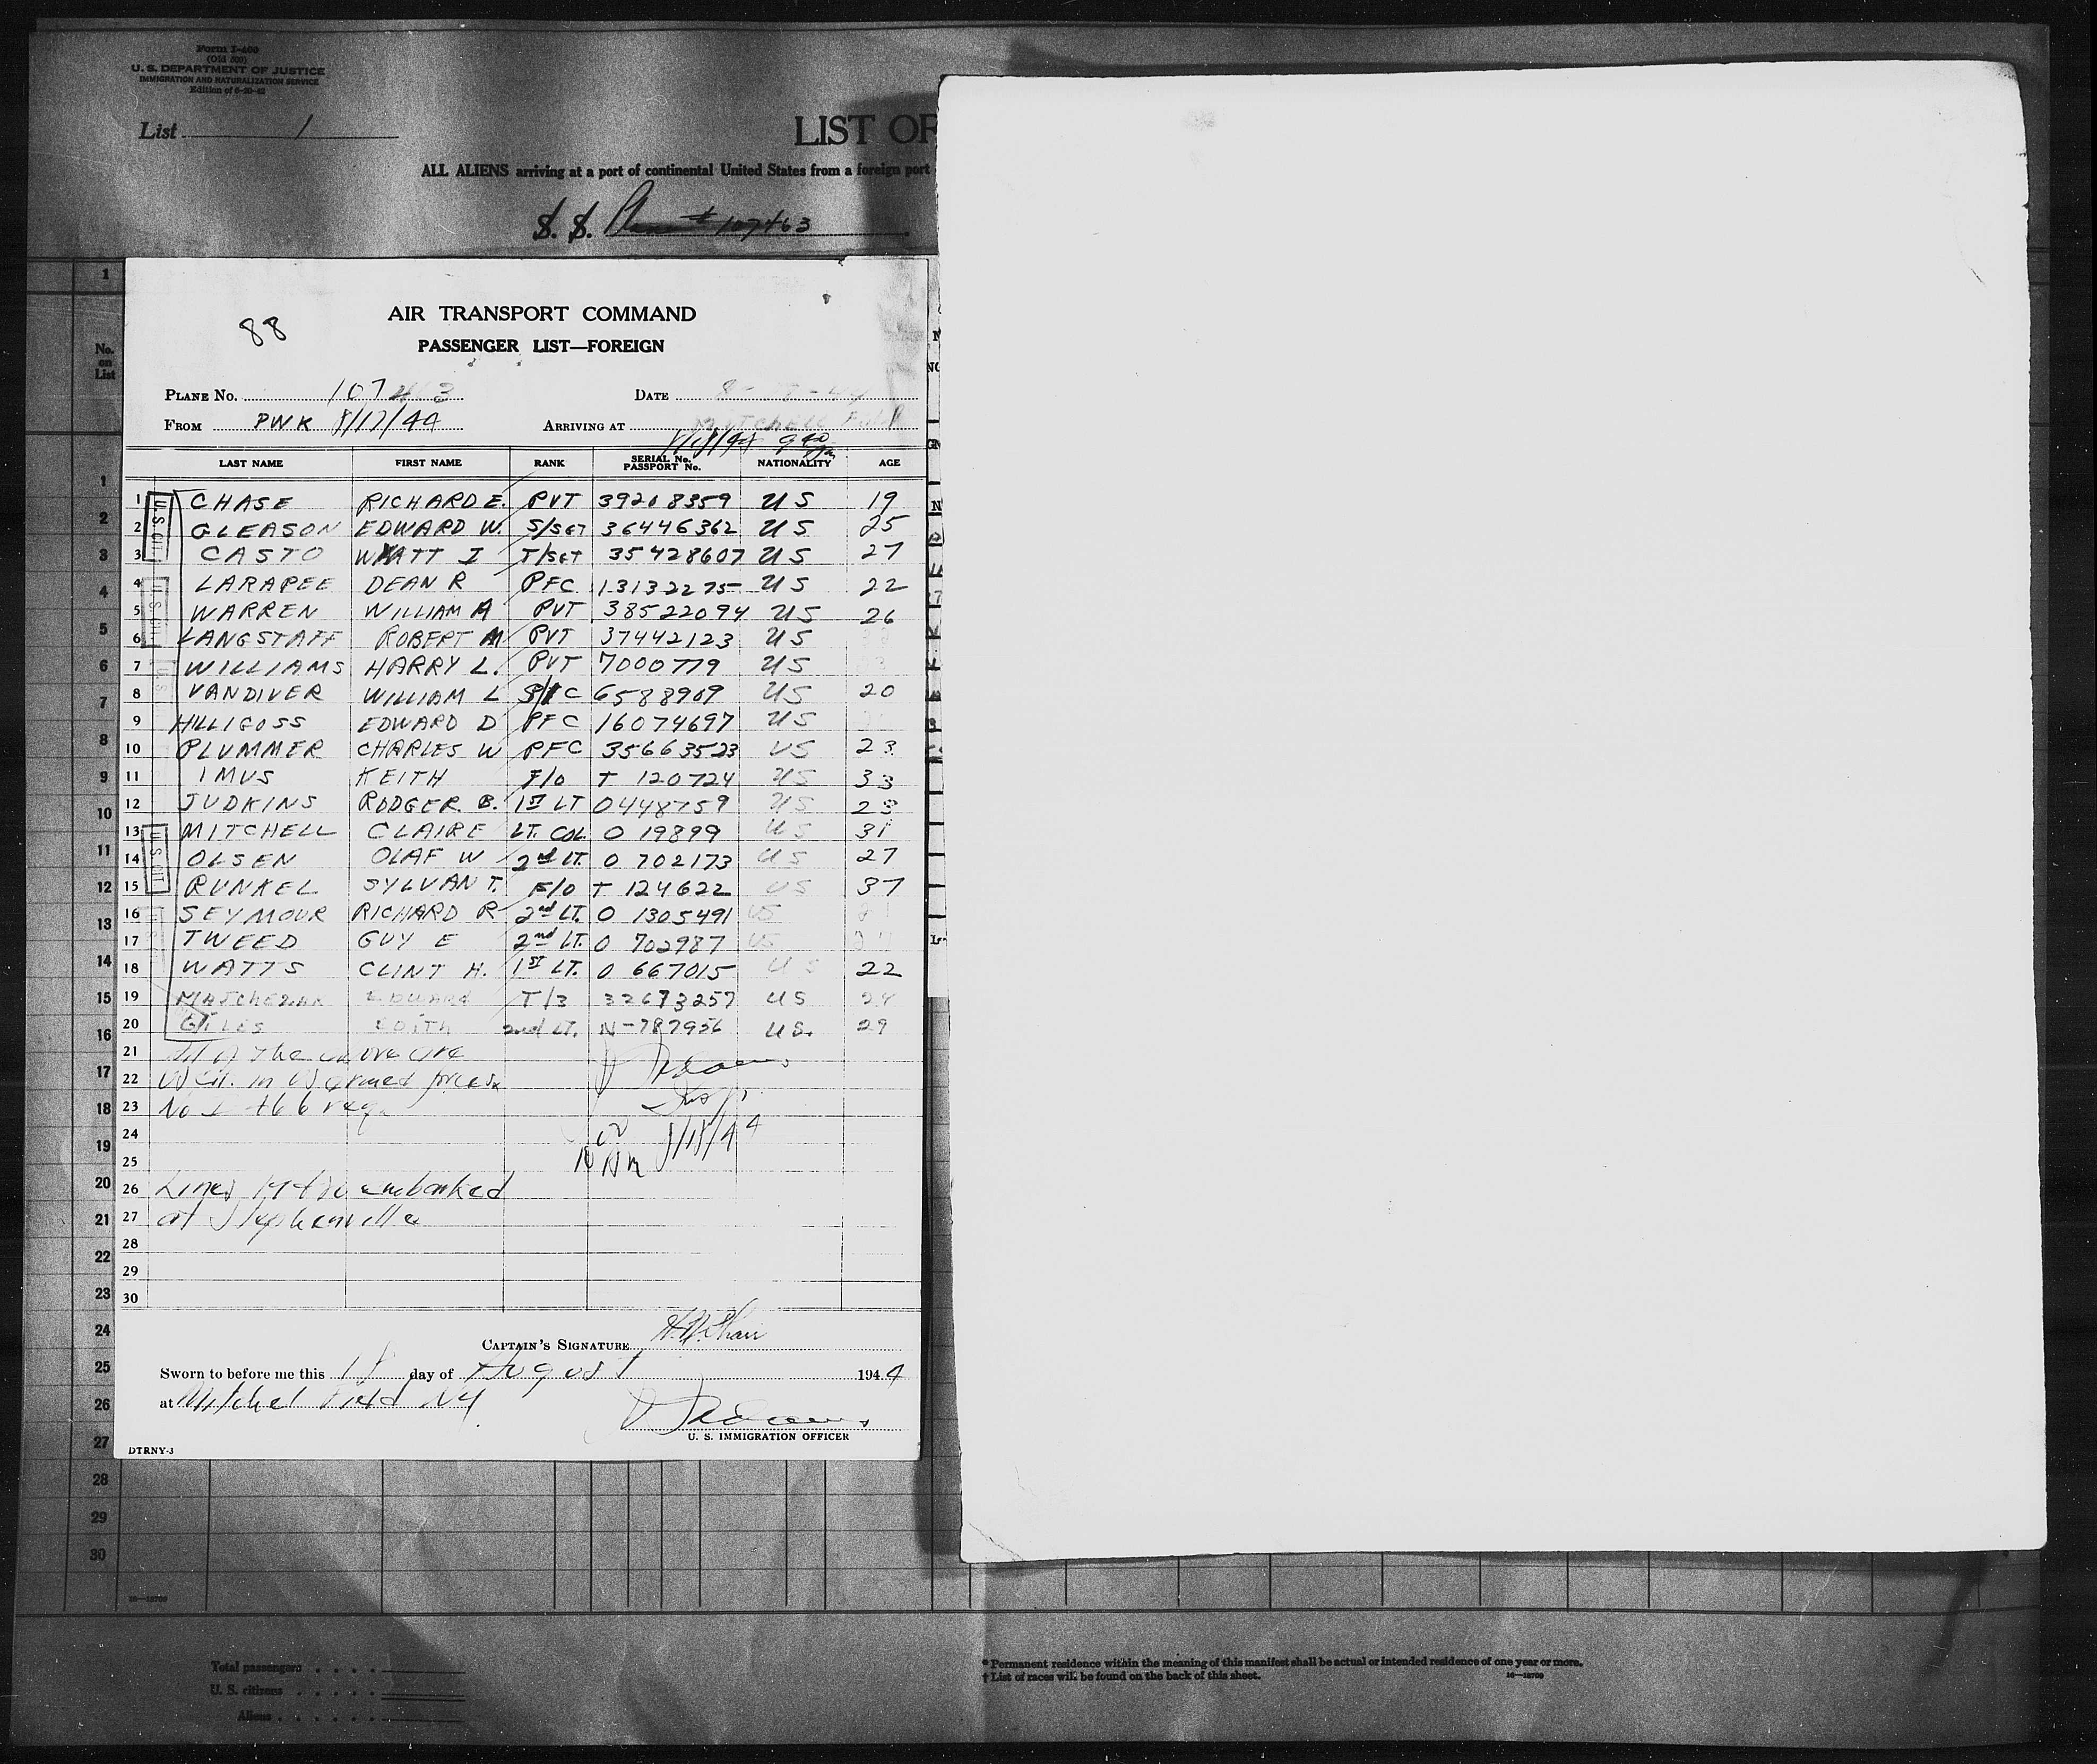 Form I-400
(Old 500)
U. S. DEPARTMENT OF JUSTICE
IMMIGRATION AND NATURALIZATION SERVICE
Edition of 6-20-42
List 1
LIST OF
ALL ALIENS arriving at a port of continental United States from a foreign port
S. S. Plane # 107463
No. on List
88
AIR TRANSPORT COMMAND
PASSENGER LIST—FOREIGN
PLANE No. 107463 DATE 8-17-44
FROM PWK 8/17/44 ARRIVING AT Mitchell Field
8/18/44 9 40 am
LAST NAME FIRST NAME RANK SERIAL No. PASSPORT No. NATIONALITY AGE
1 CHASE RICHARD E. PVT 39208359 US 19
2 GLEASON EDWARD W. S/SGT 36446362 US 25
3 CASTO WYATT J T/SGT 35428607 US 27
4 LARAPEE DEAN R PFC 13132275 US 22
5 WARREN WILLIAM A PVT 38522094 US 26
6 LANGSTAFF ROBERT M PVT 37442123 US
7 WILLIAMS HARRY L. PVT 7000779 US
8 VANDIVER WILLIAM L 6588909 US 20
9 HILLIGOSS EDWARD D PFC 16074697 US
10 PLUMMER CHARLES W PFC 35663523 US 23
11 IMUS KEITH F/O T 120724 US 33
12 JUDKINS RODGER B. 1ST LT 0448759 US 28
13 MITCHELL CLAIRE LT. COL O 19899 US 31
14 OLSEN OLAF W 2nd LT. O 702173 US 27
15 RUNKEL SYLVAN T. F/O T 124622 US 37
16 SEYMOUR RICHARD R 2nd LT. O 1305491 US
17 TWEED GUY E 2nd LT. O 702987 US
18 WATTS CLINT H. 1ST LT. O 667015 US 22
19 EDWARD T/3 32673257 US 24
20 GILES EDITH 2nd LT. N-787956 US. 29
21 All of the above are
22 US Cit. in US armed forces
23 No I 466 req.
24
10 00 AM 8/18/44
25
26 Lines 19 + 20 embarked
27 at Stephenville
28
29
30
U.S. CIT.
U.S. CIT.
U.S. CIT.
CAPTAIN'S SIGNATURE
Sworn to before me this 18 day of August 1944
at Mitchel Field NY
U. S. IMMIGRATION OFFICER
DTRNY-3
1
1
2
3
4
5
6
7
8
9
10
11
12
13
14
15
16
17
18
19
20
21
22
23
24
25
26
27
28
29
30
Total passengers
U. S. citizens
Aliens
* Permanent residence within the meaning of this manifest shall be actual or intended residence of one year or more.
† List of races will be found on the back of this sheet.